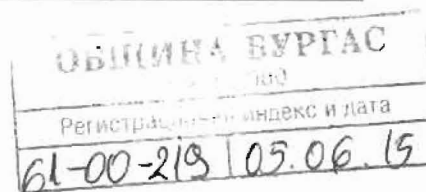 ОБЩИНА БУРГАС
Регистрационен индекс и дата
61-00-219 05.06.15